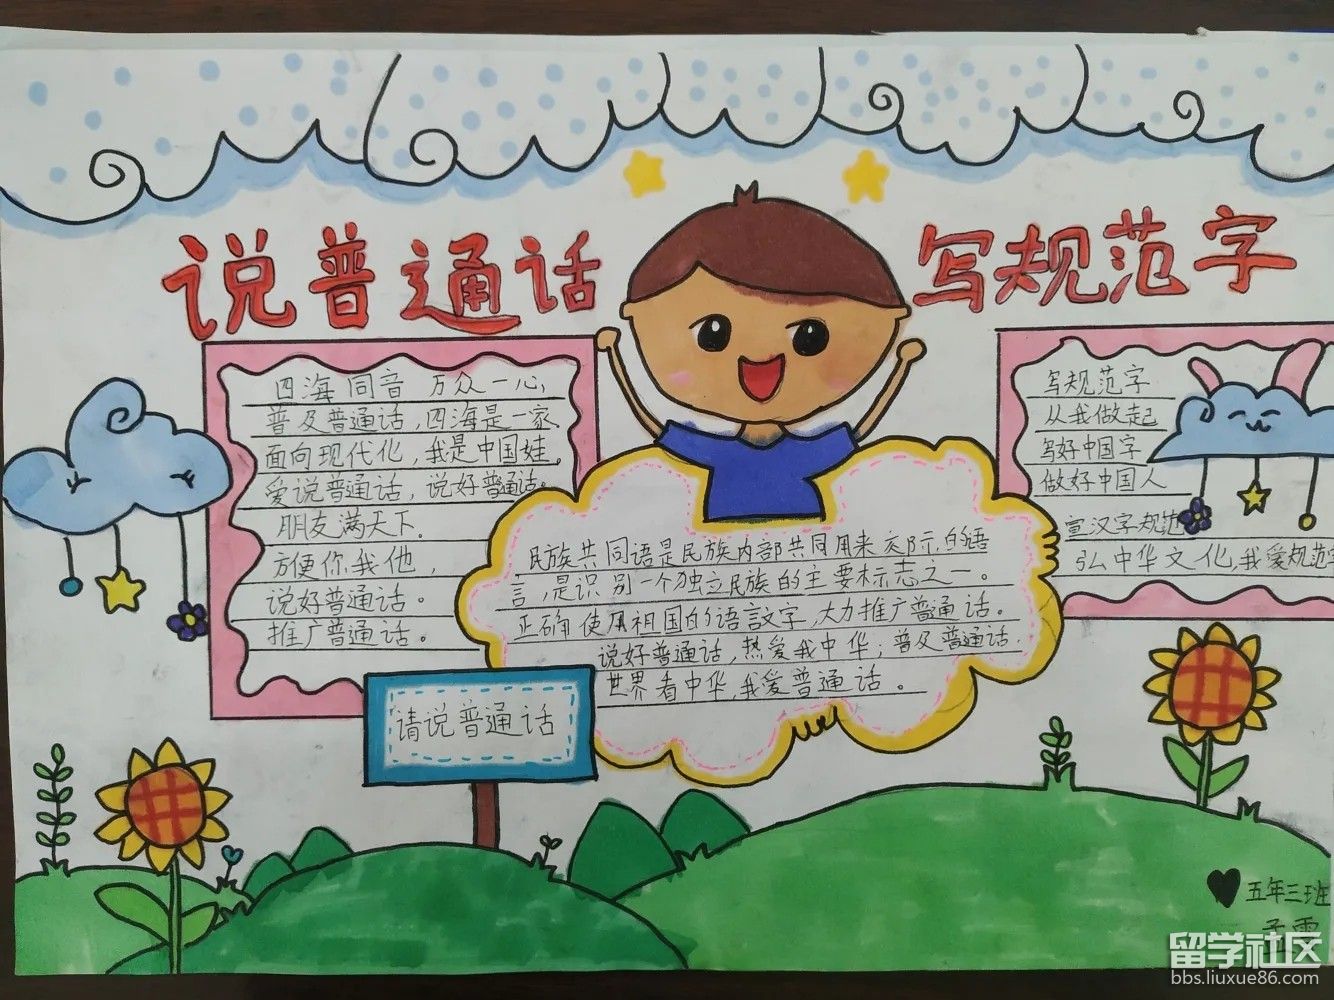 说普通话
写规范字
四海同音 万众一心,
普及普通话,四海是一家
面向现代化,我是中国娃。
爱说普通话,说好普通话。
朋友满天下。
方便你我他,
说好普通话。
推广普通话。
民族共同语是民族内部共同用来交际的语
言,是识别一个独立民族的主要标志之一。
正确使用祖国的语言文字,大力推广普通话。
说好普通话,热爱我中华;普及普通话.
世界看中华,我爱普通话。
写规范字
从我做起
写好中国字
做好中国人
宣汉字规范
弘中华文化,我爱规范字
请说普通话
五年三班
孟
留学社区
bbs.liuxue86.com